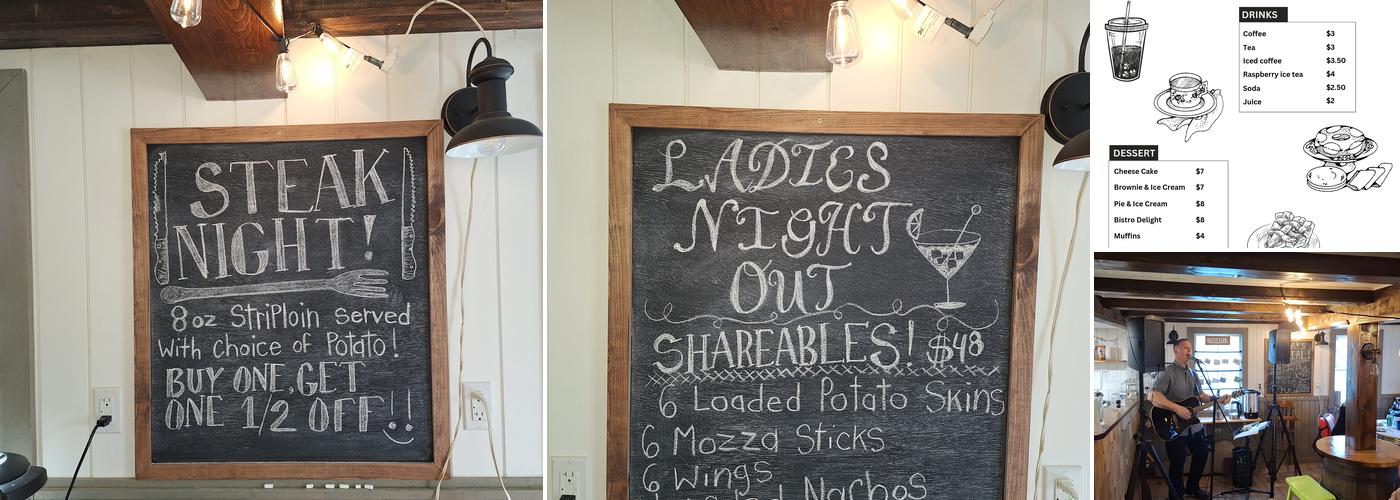 STEAK
NIGHT!
8oz StriPloin served
With Choice of Potato!
BUY ONE, GET
ONE 1/2 OFF!!
LADIES
NIGHT
OUT
SHAREABLES! $48
6 Loaded Potato Skins
6 Mozza Sticks
6 Wings
Nachos
DRINKS
Coffee $3
Tea $3
Iced coffee $3.50
Raspberry ice tea $4
Soda $2.50
Juice $2
DESSERT
Cheese Cake $7
Brownie & Ice Cream $7
Pie & Ice Cream $8
Bistro Delight $8
Muffins $4